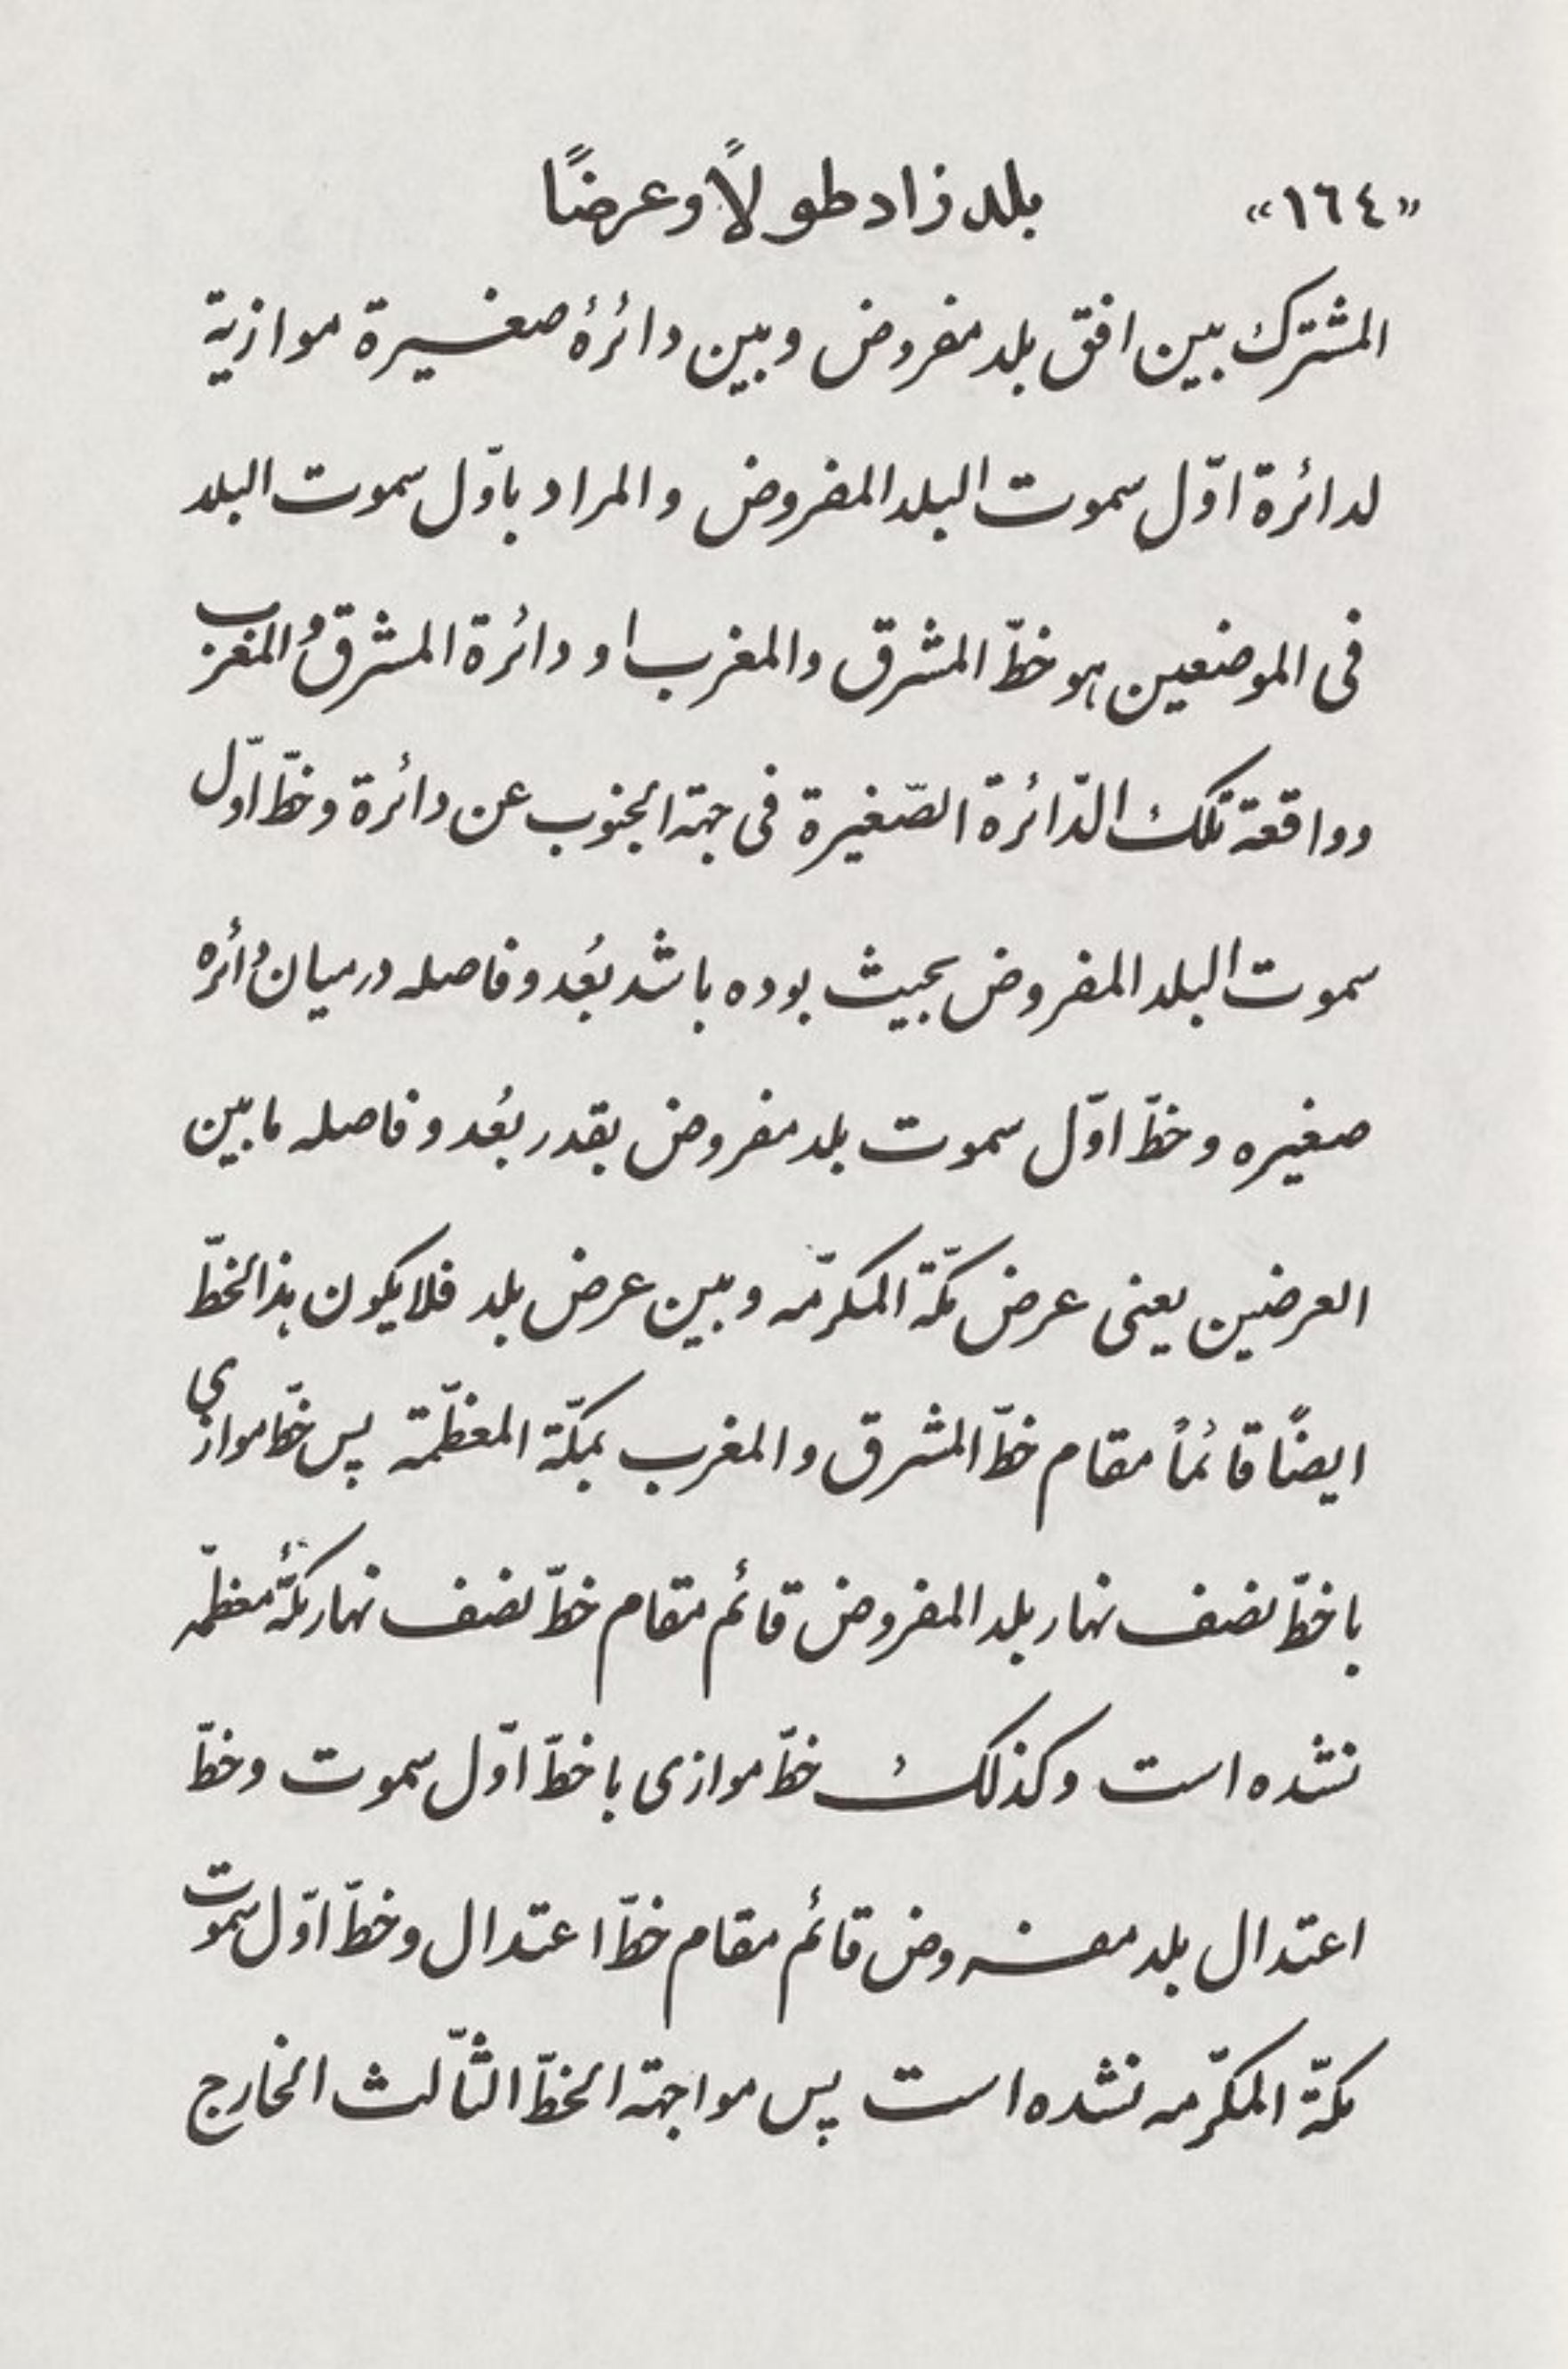 «١٦٤» بلد زاد طولاً وعرضًا
المشترك بین افق بلد مفروض وبین دائرهٔ صغیرة موازیة
لدائرة اوّل سموت البلد المفروض والمراد باوّل سموت البلد
فی الموضعین هو خطّ المشرق والمغرب او دائرة المشرق والمغرب
وواقعة تلک الدّائرة الصّغیرة فی جهة الجنوب عن دائرة وخطّ اوّل
سموت البلد المفروض بحیث بوده باشد بُعد وفاصله درمیان دائره
صغیره وخطّ اوّل سموت بلد مفروض بقدر بُعد وفاصله مابین
العرضین یعنی عرض مکّة المکرّمه وبین عرض بلد فلا یکون هذا الخطّ
ایضًا قائماً مقام خطّ المشرق والمغرب بمکّة المعظّمة پس خطّ موازی
با خطّ نصف نهار بلد المفروض قائم مقام خطّ نصف نهار مکّهٔ معظّمه
نشده است وکذلک خطّ موازی با خطّ اوّل سموت وخطّ
اعتدال بلد مفروض قائم مقام خطّ اعتدال وخطّ اوّل سموت
مکّة المکرّمه نشده است پس مواجهة الخطّ الثّالث الخارج